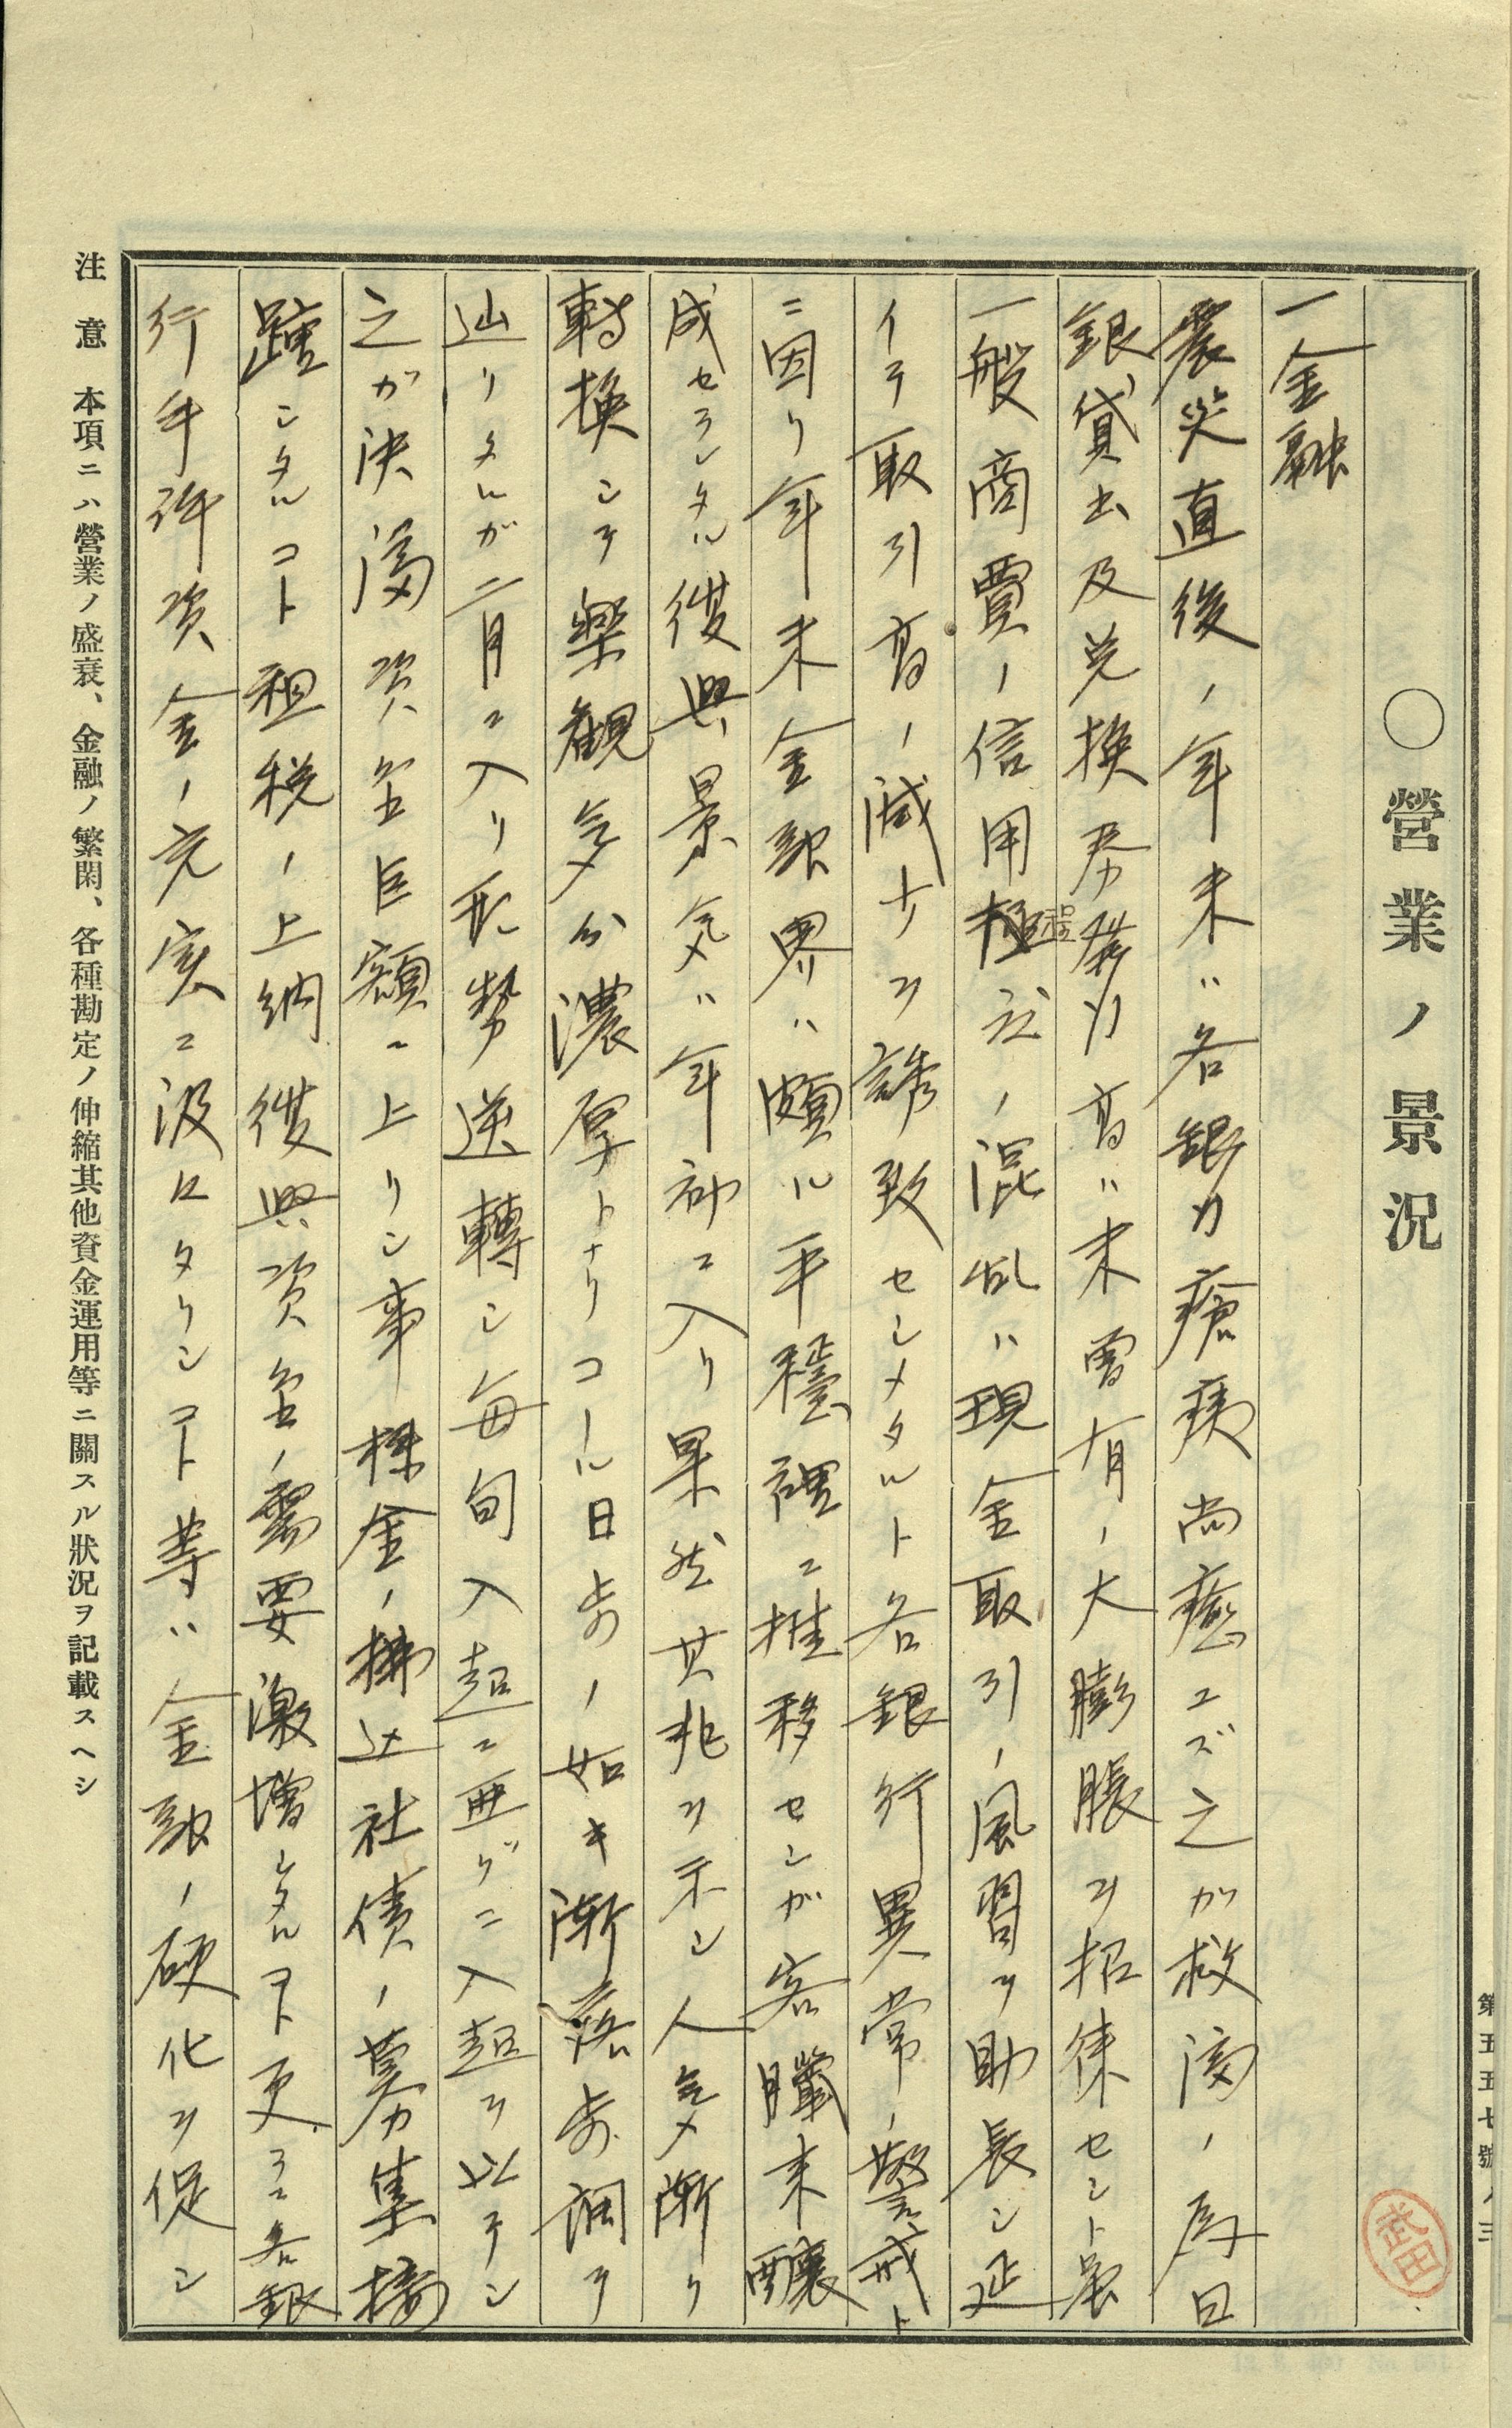 第五五七號ノ三
武田
○營業ノ景況
一金融
震災直後ノ年末ハ各銀カ瘡痍尚癒エズ之カ救濟ノ為日
銀貸出及兌換券発行高ハ未曽有ノ大膨脹ヲ招徠セシト虽
一般商賈ノ信用程度ノ混乱ハ現金取引ノ風習ヲ助長シ延
イテ取引高ノ減少ヲ誘致セシメタルト各銀行異常ノ警戒ト
ニ因リ年末金融界ハ頗ル平穏裡ニ推移セシガ客臘末釀
成セラレタル復興景気ハ年初ニ入リ果然其兆ヲ示シ人気漸ク
轉換シテ樂観気分濃厚トナリコール日歩ノ如キ漸落歩調ヲ
辿リタルガ二月ニ入リ形勢逆轉シ毎旬入超ニ亜グニ入超ヲ以テシ
之ガ決濟資金巨額ニ上リシ事株金ノ拂込社債ノ募集接
踵シタルコト租税ノ上納復興資金ノ需要激増シタルコト更ラニ各銀
行手許資金ノ充実ニ汲々タリシコト等ハ金融ノ硬化ヲ促シ
注意 本項ニハ營業ノ盛衰、金融ノ繁閑、各種勘定ノ伸縮其他資金運用等ニ關スル狀況ヲ記載スヘシ